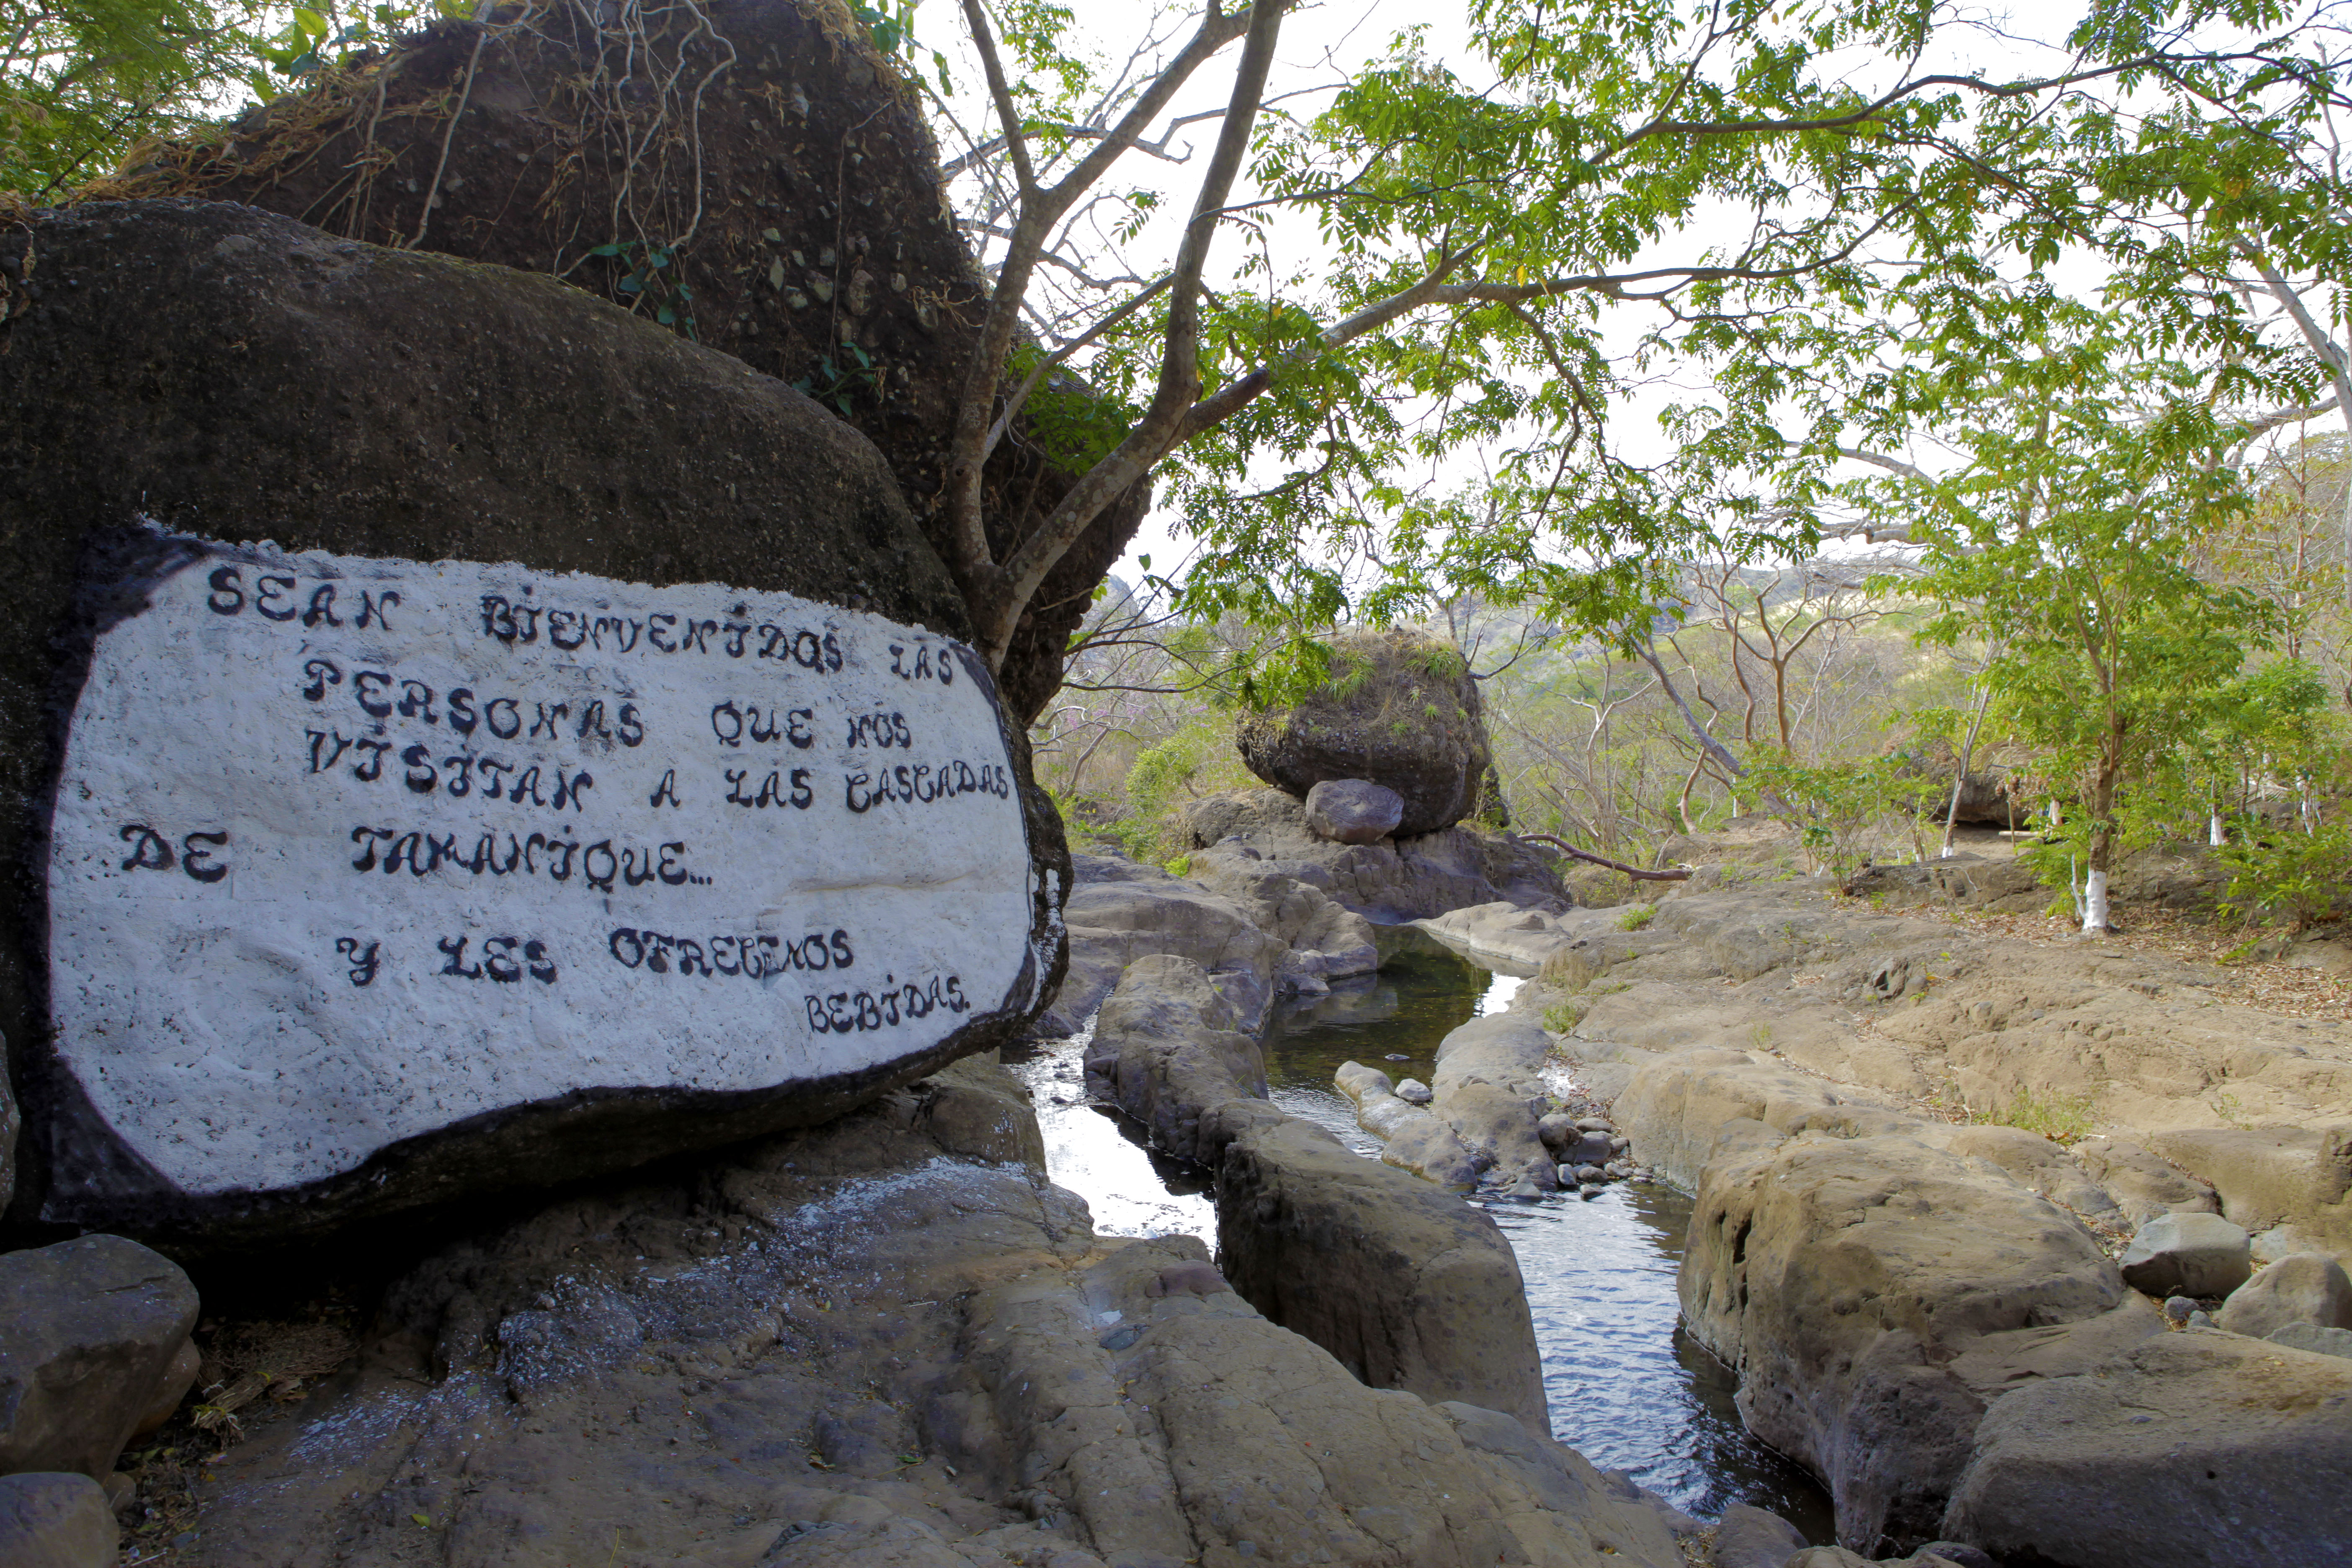 SEAN BIENVENIDOS LAS
PERSONAS QUE NOS
VISITAN A LAS CASCADAS
DE TAMANIQUE...
Y LES OFRECEMOS
BEBIDAS.